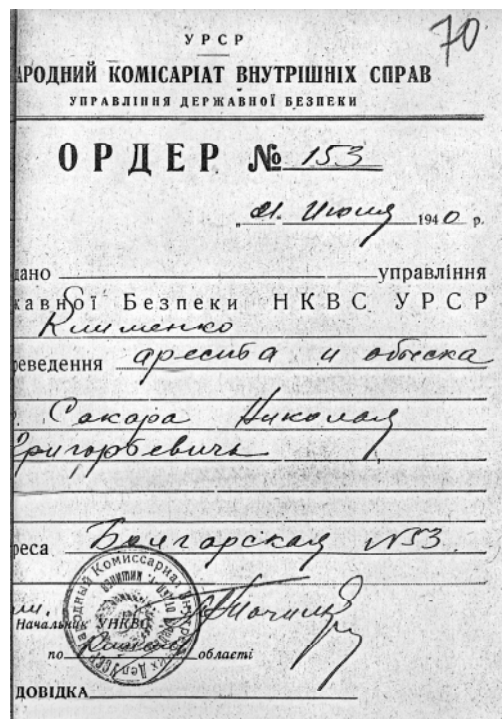 70
УРСР
АРОДНИЙ КОМІСАРІАТ ВНУТРІШНІХ СПРАВ
УПРАВЛІННЯ ДЕРЖАВНОЇ БЕЗПЕКИ
ОРДЕР № 153
21. Июня 1940 р.
дано управління
жавної Безпеки НКВС УРСР
Клименко
реведення ареста и обыска
Сакара Николая
Григорьевича
реса Болгарская №53
Начальник УНКВС
по області
ДОВІДКА